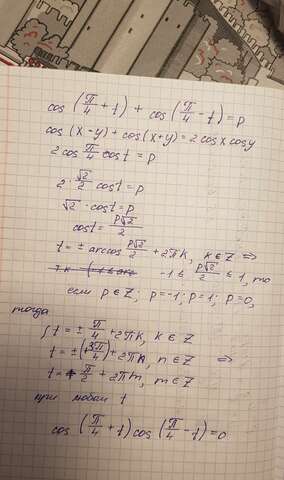 cos (π/4 + t) + cos (π/4 - t) = p
cos (x - y) + cos (x + y) = 2 cos x cos y
2 cos π/4 cos t = p
2 · √2/2 cos t = p
√2 · cos t = p
cos t = p√2/2
t = ± arccos p√2/2 + 2πk, k ∈ Z ⇔
-1 ≤ p√2/2 ≤ 1, то
если p ∈ Z; p = -1; p = 1; p = 0,
тогда
{ t = ± π/4 + 2πk, k ∈ Z
t = ± (+3π/4) + 2πn, n ∈ Z ⇔
t = π/2 + 2πm, m ∈ Z
при любом t
cos (π/4 + t) cos (π/4 - t) = 0